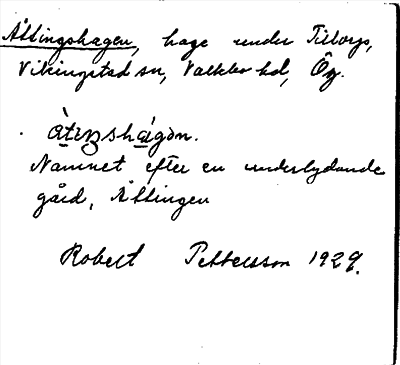 Åttingshagen, hage under Tillorp,
Vikingstad sn, Valkebo hd, Ög.
àtɪŋshágən.
Namnet efter en underlydande
gård, Åttingen
Robert Pettersson 1929.